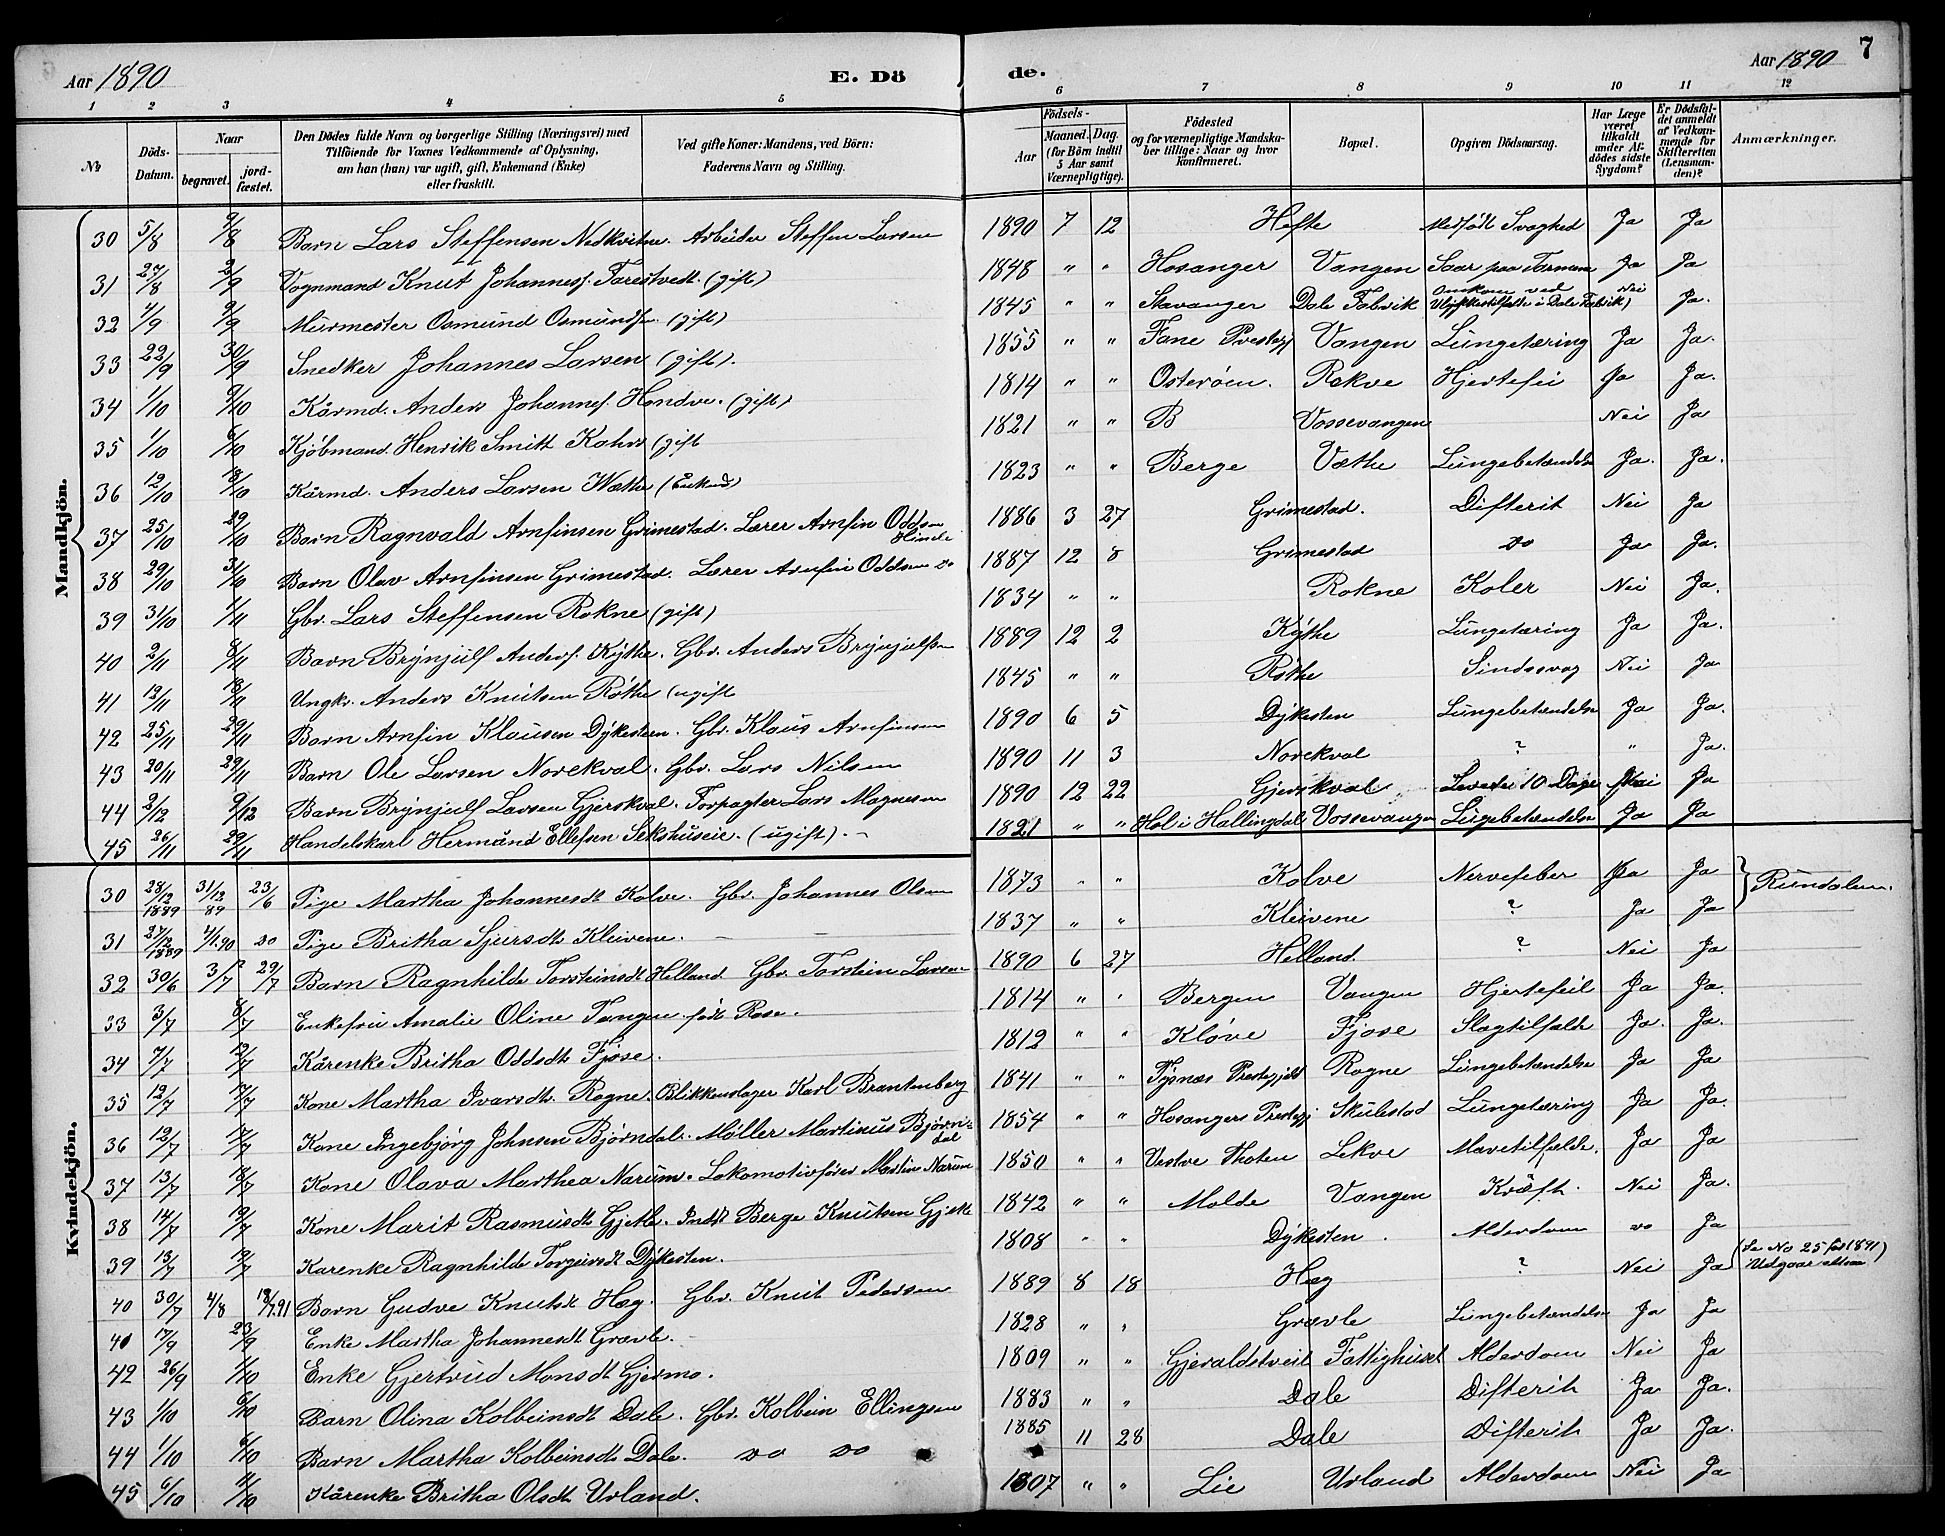 Aar 1890 E. Dö de. Aar 1890 7
1 2 3 4 5 6 7 8 9 10 11 12
№ Döds-Datum. Naar begravet. jord-fæstet. Den Dödes fulde Navn og borgerlige Stilling (Næringsvei) med Tilföiende for Voxnes Vedkommende af Oplysning, om han (hun) var ugift, gift, Enkemand (Enke) eller fraskilt. Ved gifte Koner: Mandens, ved Börn: Faderens Navn og Stilling. Födsels- Aar Maaned. Dag. (for Börn indtil 5 Aar samt Værnepligtige). Födested og for værnepligtige Mandska-ber tillige: Naar og hvor konfirmeret. Bopæl. Opgiven Dödsaarsag. Har Læge været tilkaldt under Af-dödes sidste Sygdom? Er Dödsfal-det anmeldt af Vedkom-mende for Skifteretten (Lensman-den)? Anmærkninger.
Mandkjön.
30 5/8 9/8 Barn Lars Steffensen Nedkviten. Arbeider Steffen Larsen 1890 7 12 Hefte Medfödt Svaghed Ja Ja
31 27/8 2/9 Vognmand Knut Johannesf. Farestvedt. (gift) 1848 " " Hosanger Vangen Saar paa Tarmene Ja Ja
32 4/9 9/9 Murmester Osmund Osmundsen (gift) 1845 " " Stavanger Dale Fabrik Omkom ved Ulykkestilfælde i Dale Fabrik) Nei Ja.
33 22/9 30/9 Snedker Johannes Larsen (gift). 1855 " " Fane Prestegj Vangen Lungetæring Ja Ja.
34 1/10 9/10 Kårmd. Anders Johannesf. Hondve. (gift) 1814 " " Osterøen. Rokve Hjertefei Ja Ja.
35 1/10 6/10 Kjöbmand Henrik Smitt Kahrs (gift 1821 " " B Vossevangen Nei Ja
36 12/10 18/10 Kårmd. Anders Larsen Wæthe (Enkmd) 1823 " " Berge Væthe Lungebetændelse Ja. Ja.
37 25/10 29/10 Barn Ragnvald Arnfinsen Grimestad. Lærer Arnfin Oddsen Himle 1886 3 27 Grimestad. Difterit Nei Ja
38 29/10 31/10 Barn Olav Arnfinsen Grimestad. Lærer Arnfin Oddsen do 1887 12 8 Grimestad do Ja Ja.
39 31/10 1/11 Gbr. Lars Steffensen Rokne (gift) 1834 " " Rokne Koler Nei Ja.
40 2/11 8/11 Barn Brynjulf Andersf. Kythe. Gbr. Anders Brynjulfsen 1889 12 2 Kythe Lungetæring Ja Ja.
41 12/11 18/11 Ungkr. Anders Knutsen Röthe (ugift 1845 " " Röthe Sindssvag Nei Ja
42 25/11 29/11 Barn Arnfin Klausen Dykesteen. Gbr. Klaus Arnfinsen 1890 6 5 Dykesten Lungebetændelse Ja Ja.
43 20/11 29/11 Barn Ole Larsen Norekval. Gbr. Lars Nilsen 1890 11 3 Norekval ? " Ja.
44 2/12 9/12 Barn Brynjulf Larsen Gjerskval. Forpagter Lars Magnesen 1890 12 22 Gjerskval Levede 10 Dage Nei Ja
45 26/11 29/11 Handelskarl Hermånd Ellefsen Sekshuseie. (ugift). – 1821 " " Hol i Hallingdal Vossevangen Lungebetændelse Ja Ja
Kvindekjön.
30 28/12 1889 31/12 89 23/6 Pige Martha Johannesdt Kolve. Gbr. Johannes Olsen 1873 " " Kolve Nervefeber Ja Ja } Rundalen.
31 27/12 1889 4/1.90 do Pige Britha Sjursdt Kleivene. – – 1837 " " Kleivene ? Ja Ja
32 30/6 3/7 29/7 Barn Ragnhilde Torsteinsdt Helland Gbr. Torstein Larsen 1890 6 27 Helland ? Nei Ja
33 3/7 8/7 Enkefru Amalie Oline Tangen født Rose. 1814 " " Bergen Vangen Hjertefeil Ja Ja.
34 7/7 12/7 Kårenke Britha Oddsdt Fjøse. 1812 " " Kløve Fjose Slagtilfælde Ja. Ja.
35 12/7 17/7 Kone Martha Ivarsdt. Rogne. Blikkenslager Karl Brantenberg 1841 " " Tysnæs Prestegjeld Rogne Lungebetændelse Ja Ja
36 12/7 17/7 Kone Ingebjörg Johnsen Bjørndal. Møller Martinus Bjørndal 1854 " " Hosangers Prestegj Skulestad Lungetæring Ja Ja.
37 13/7 18/7 Kone Olava Marthea Narum. Lokomotivfører Martin Narum 1850 " " Vestre Thoten Lekve Mavetilfælde. Ja Ja
38 14/7 19/7 Kone Marit Rasmusdt Gjetle. Indst Berge Knutsen Gjetle 1842 " " Molde Vangen Kræft. Nei Ja.
39 13/7 19/7 Karenke Ragnhilde Torgeirsdt Dykesten. 1808 " " Dykesten. Alderdom do Ja
40 30/7 4/8 18/7.91 Barn Gudve Knutsdt Hæg. Gbr. Knut Pedersen 1889 8 18 Hæg ? Nei Ja (Se No 25 for 1891) Udgaar
41 17/9 23/9 Enke Martha Johannesdt Grævle. 1828 " " Grævle Lungebetændelse Ja Ja
42 26/9 1/10 Enke Gjertrud Monsdt Gjermo. 1809 " " Gjeraldstveit Fattighuset Alderdom Nei Ja
43 1/10 6/10 Barn Olina Kolbeinsdt Dale. Gbr. Kolbein Ellingsen 1883 " " Dale Difterit Ja Ja.
44 1/10 6/10 Barn Martha Kolbeinsdt Dale. do do 1885 11 28 Dale Difterit Ja Ja.
45 6/10 11/10 Kårenke Britha Olsdt Urland. 1807 " " Lie Urland Alderdom Nei Ja